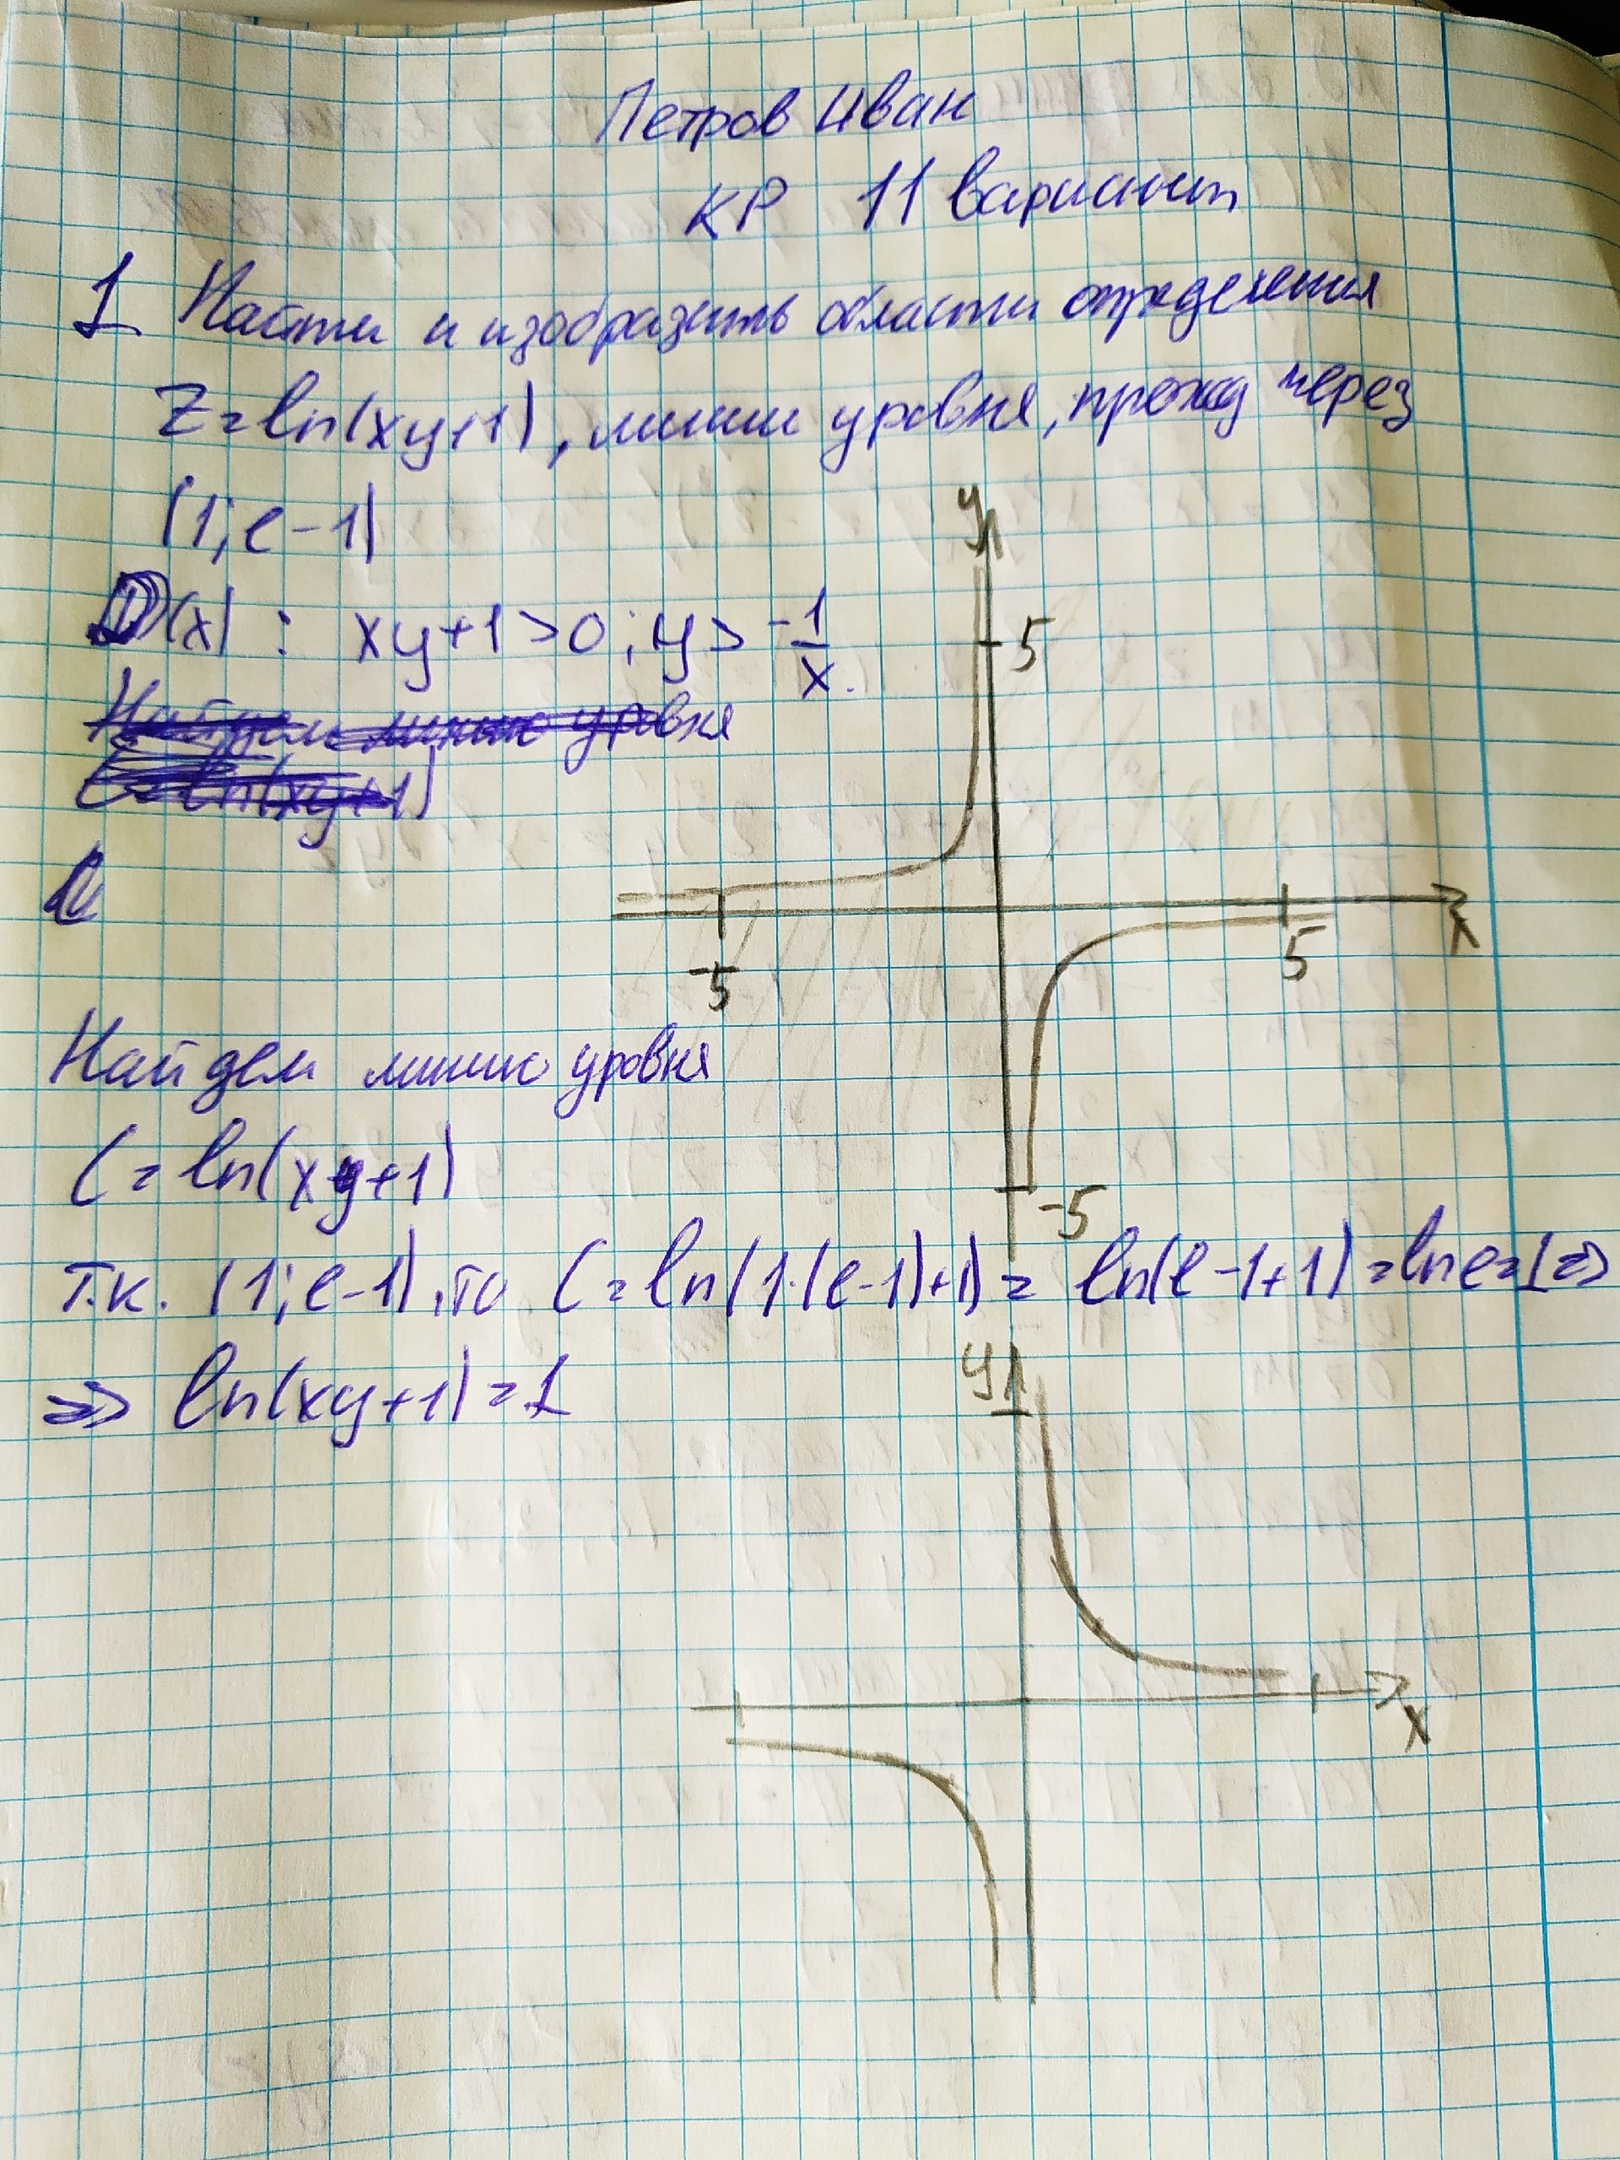 Петров Иван
КР 11 вариант
1. Найти и изобразить области определения
z=ln(xy+1), линии уровня, проход через
(1; e-1)
D(x) : xy+1>0; y> -1/x.
Найдем линию уровня
C=ln(xy+1)
y
5
x
-5
5
-5
Найдем линию уровня
C=ln(xy+1)
т.к. (1; e-1), то C=ln(1·(e-1)+1)= ln(e-1+1)=ln e=1 =>
=> ln(xy+1)=1
y
x